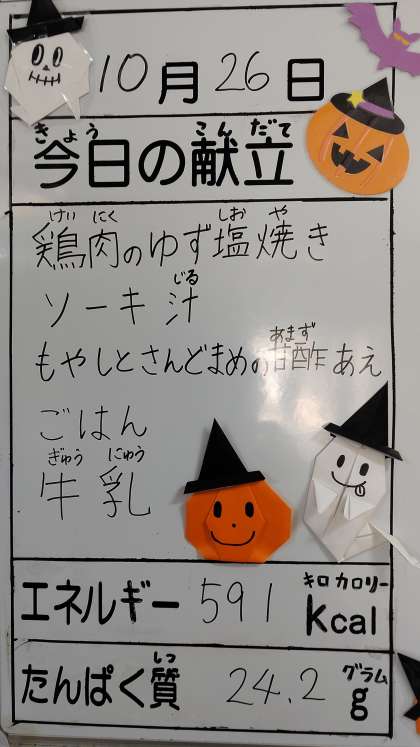 10月26日
きょう こんだて
今日の献立
けい にく しお や
鶏肉のゆず塩焼き
じる
ソーキ汁
あまず
もやしとさんどまめの甘酢あえ
ごはん
ぎゅう にゅう
牛乳
キロカロリー
エネルギー 591 kcal
しつ グラム
たんぱく質 24.2 g